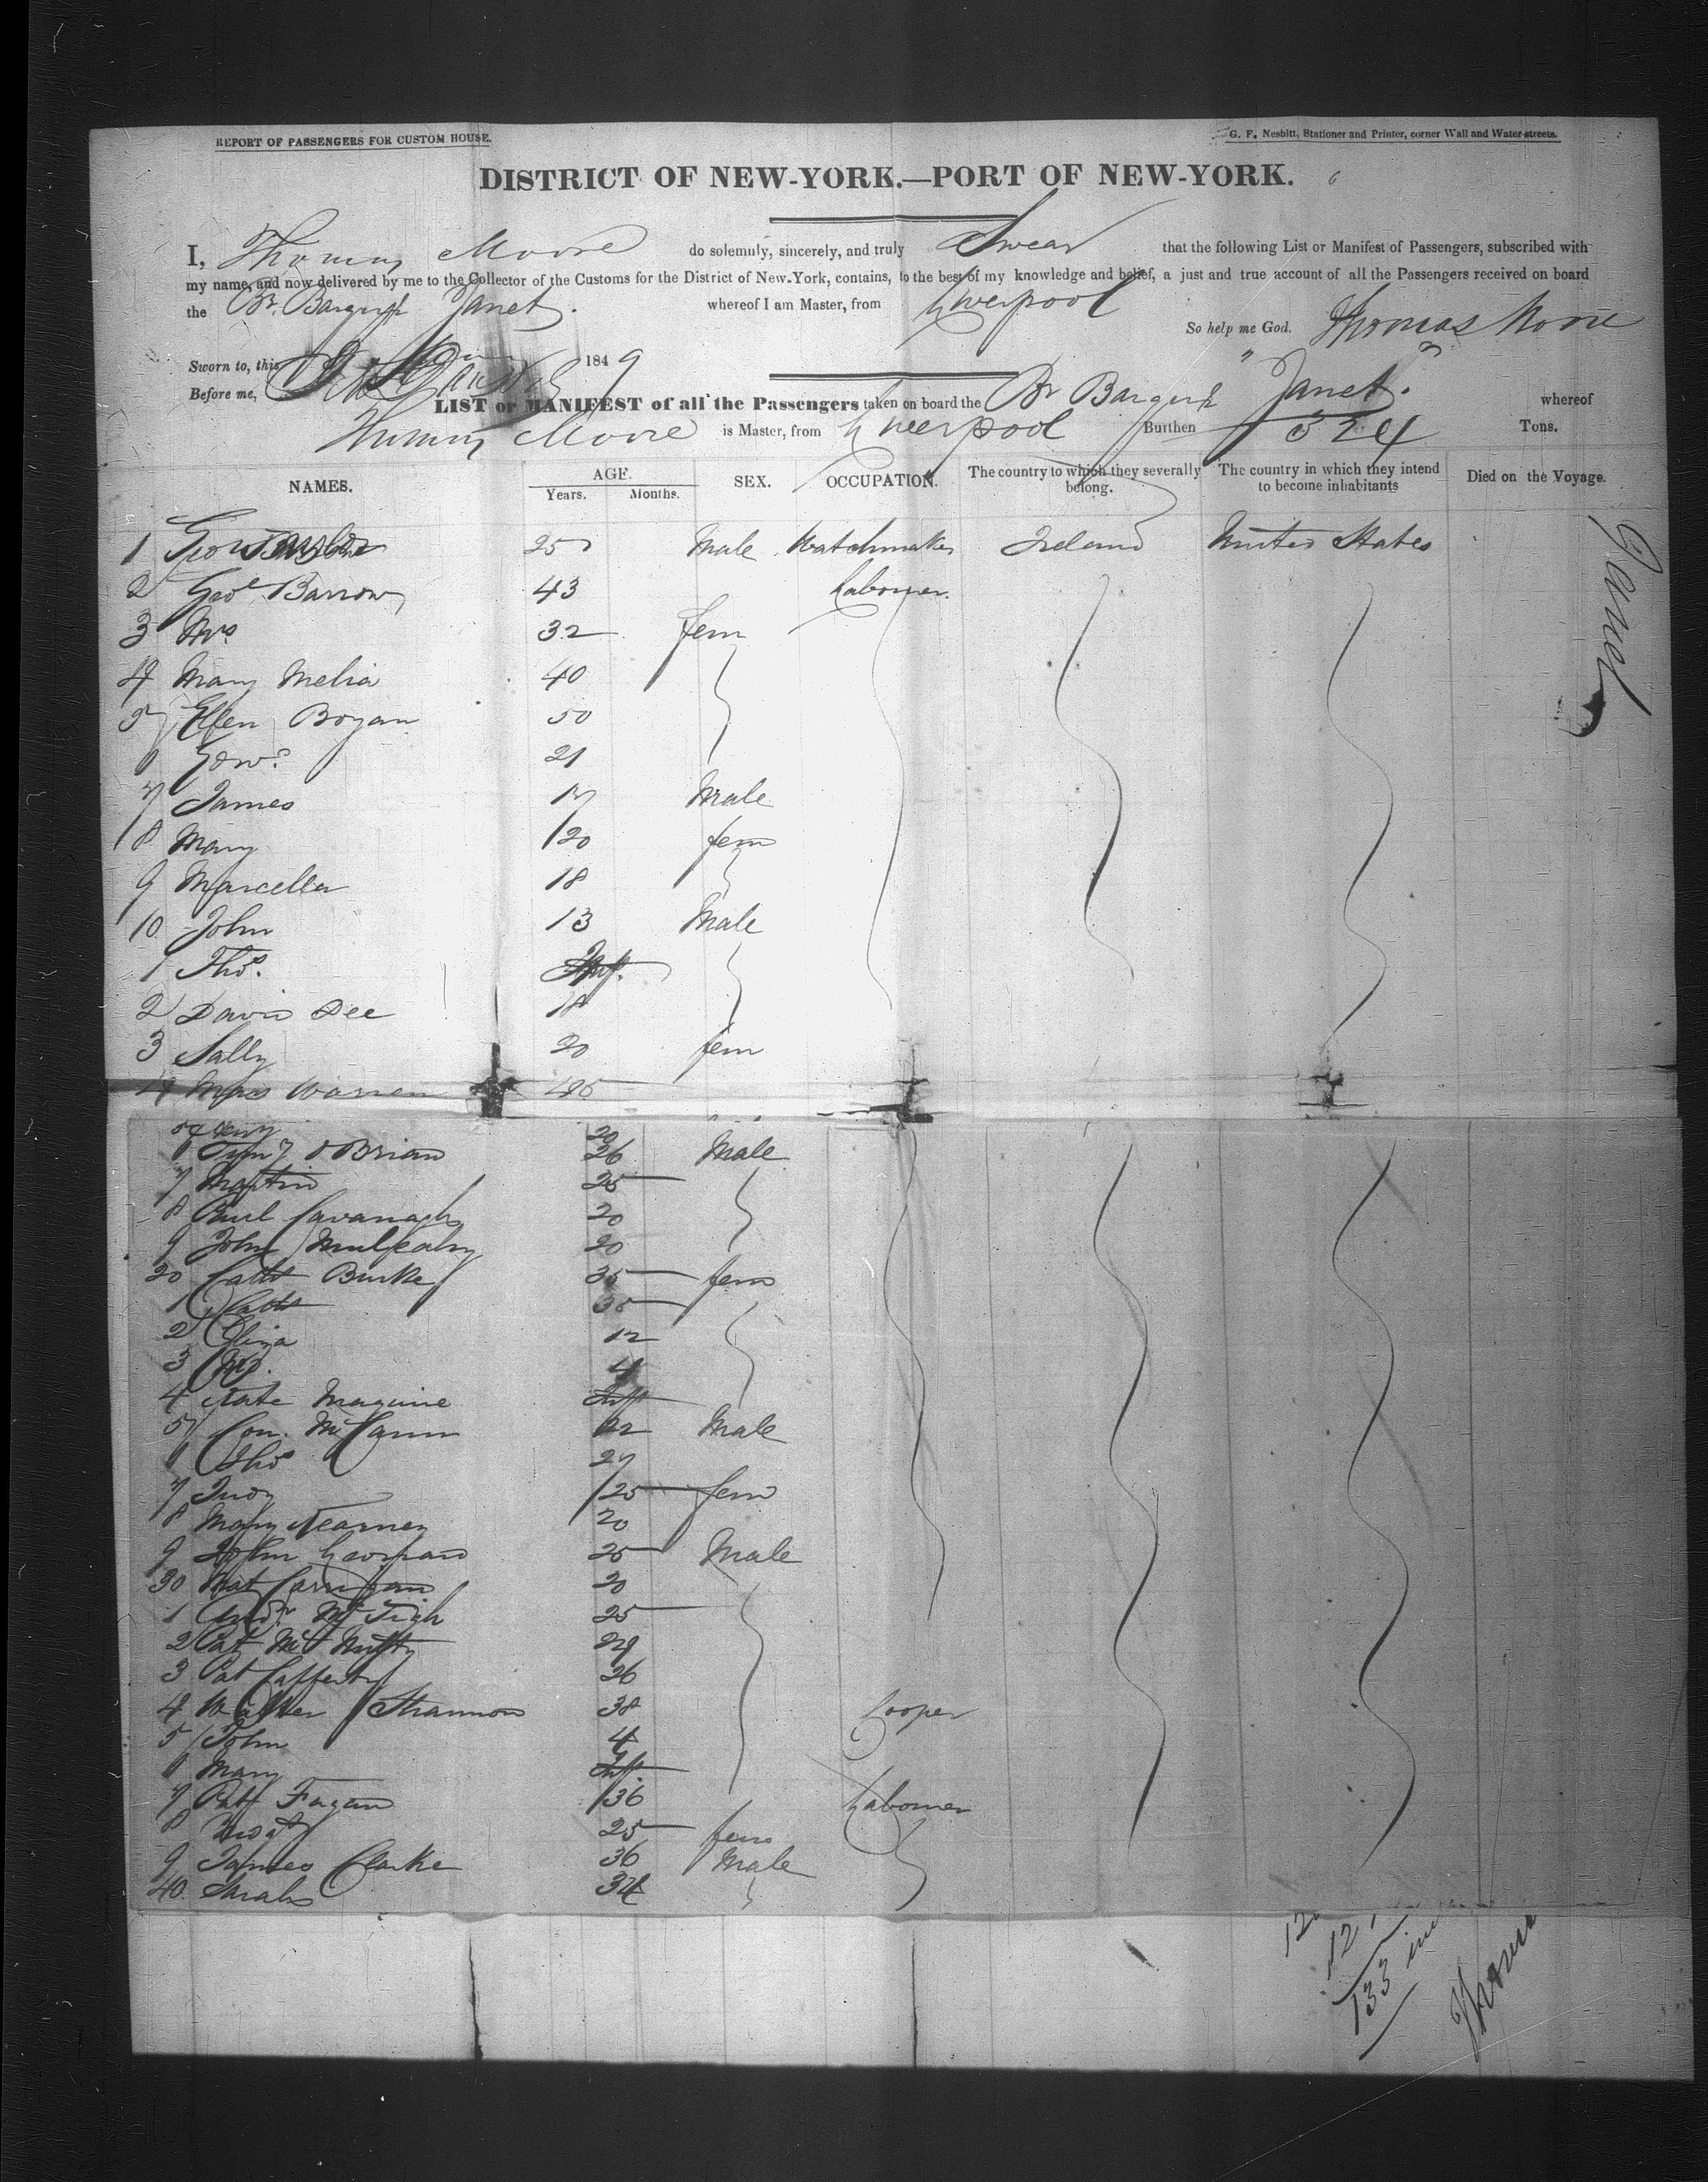 REPORT OF PASSENGERS FOR CUSTOM HOUSE.
G. F. Nesbitt, Stationer and Printer, corner Wall and Water-streets.
DISTRICT OF NEW-YORK.—PORT OF NEW-YORK.
I, Thomas Moore do solemnly, sincerely, and truly Swear that the following List or Manifest of Passengers, subscribed with
my name, and now delivered by me to the Collector of the Customs for the District of New-York, contains, to the best of my knowledge and belief, a just and true account of all the Passengers received on board
the Br. Barque Janet. whereof I am Master, from Liverpool
So help me God. Thomas Moore
Sworn to, this 1849
Before me,
LIST or MANIFEST of all the Passengers taken on board the Br Barque "Janet." whereof
Thomas Moore is Master, from Liverpool Burthen 324 Tons.
NAMES. AGE. Years. Months. SEX. OCCUPATION. The country to which they severally belong. The country in which they intend to become inhabitants Died on the Voyage.
1 Geo 25 Male Watchmaker Ireland United States
2 Geo Barrow 43 Labourer
3 Mrs 32 fem
4 Mary Melia 40
5 Ellen Bogan 50
6 Edwd 21
7 James 17 Male
8 Mary 20 fem
9 Marcella 18
10 John 13 Male
1 Thos. Inft.
2 David Dee 18
3 Sally 20 fem
4 Warren
5 20
6 Timy O Brian 26 Male
7 Martin 25
8 Paul Cavanagh 20
9 John 20
20 Cath Burke 35 fem
1 Cath 35
2 Eliza 12
3 4
4 Kate Maguire Inft
5 Con. McCann 22 Male
6 Thos
7 Judy 25 fem
8 Mary Kearney 20
9 John Leonard 25 Male
30 Mat Carrigan 20
1 Andw McTigh 25
2 Pat Mc
3 Pat Cafferty 26
4 Walter Shannon 38 Cooper
5 John 4
6 Mary Inft
7 Patt Fagan 36 Labourer
8 25 fem
9 James Clarke 36 Male
40. Sarah 34
Janet
12
12
133